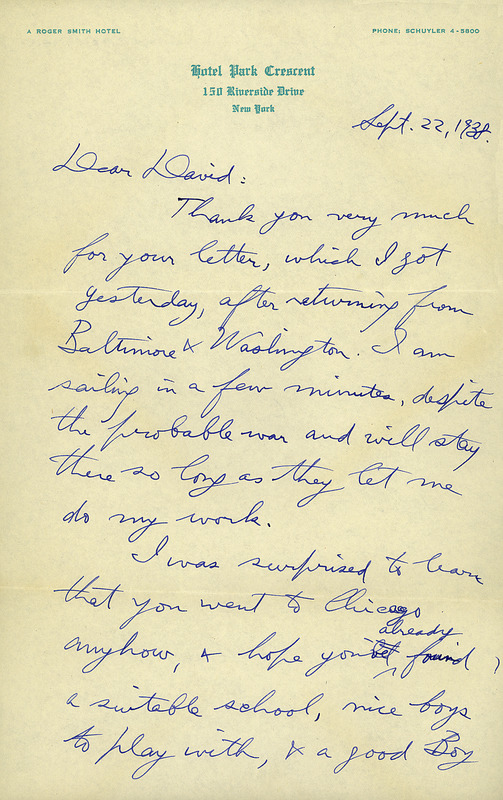 A ROGER SMITH HOTEL
PHONE: SCHUYLER 4-5800
Hotel Park Crescent
150 Riverside Drive
New York
Sept. 22, 1938.
Dear David:
Thank you very much
for your letter, which I got
yesterday, after returning from
Baltimore & Washington. I am
sailing in a few minutes, despite
the probable war and will stay
there so long as they let me
do my work.
I was surprised to learn
that you went to Chicago
already
anyhow, & hope you've found
a suitable school, nice boys
to play with, & a good Boy